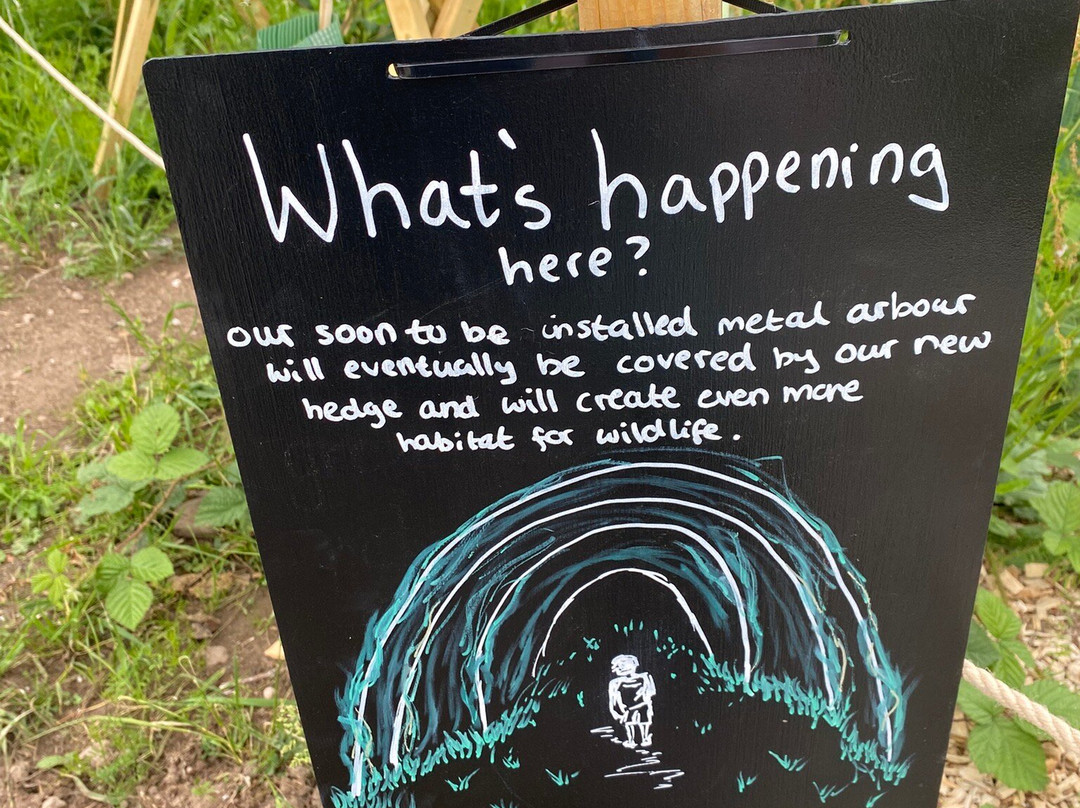 What's happening
here?
our soon to be installed metal arbour
will eventually be covered by our new
hedge and will create even more
habitat for wildlife.